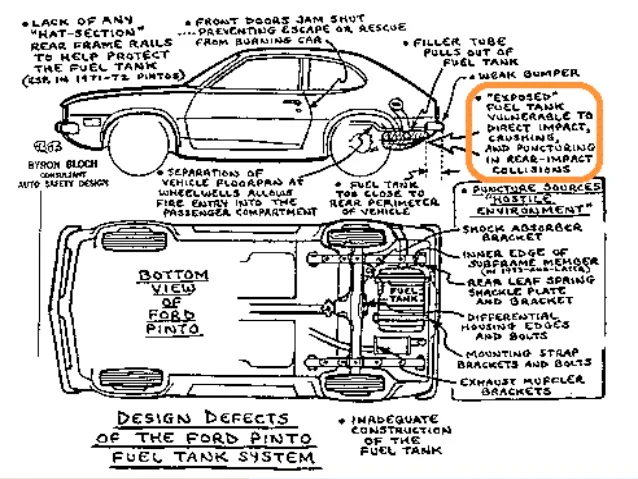 • LACK OF ANY
"HAT-SECTION"
REAR FRAME RAILS
TO HELP PROTECT
THE FUEL TANK
(ESP. IN 1971-72 PINTOS)
• FRONT DOORS JAM SHUT
.... PREVENTING ESCAPE OR RESCUE
FROM BURNING CAR
• FILLER TUBE
PULLS OUT OF
FUEL TANK
• WEAK BUMPER
• "EXPOSED"
FUEL TANK
VULNERABLE TO
DIRECT IMPACT,
CRUSHING,
AND PUNCTURING
IN REAR-IMPACT
COLLISIONS
BB
BYRON BLOCH
CONSULTANT
AUTO SAFETY DESIGN
• SEPARATION OF
VEHICLE FLOORPAN AT
WHEELWELLS ALLOWS
FIRE ENTRY INTO THE
PASSENGER COMPARTMENT
• FUEL TANK
TOO CLOSE TO
REAR PERIMETER
OF VEHICLE
• PUNCTURE SOURCES
"HOSTILE
ENVIRONMENT"
SHOCK ABSORBER
BRACKET
INNER EDGE OF
SUBFRAME MEMBER
(IN 1973-AND-LATER)
REAR LEAF SPRING
SHACKLE PLATE
AND BRACKET
DIFFERENTIAL
HOUSING EDGES
AND BOLTS
MOUNTING STRAP
BRACKETS AND BOLTS
EXHAUST MUFFLER
BRACKETS
BOTTOM
VIEW
OF
FORD
PINTO
FUEL
TANK
DESIGN DEFECTS
OF THE FORD PINTO
FUEL TANK SYSTEM
• INADEQUATE
CONSTRUCTION
OF THE
FUEL TANK